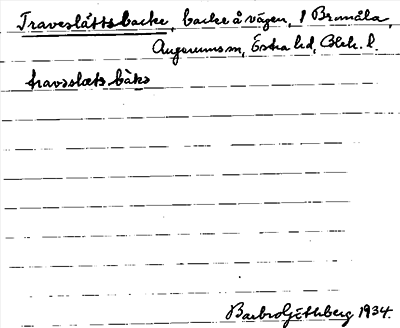 Traveslättsbacke, backe å vägen, 1 Bromåla,
Augerums sn, Östra hd, Blek. l.
travəslæts bàkə
Barbro Götlberg 1934.